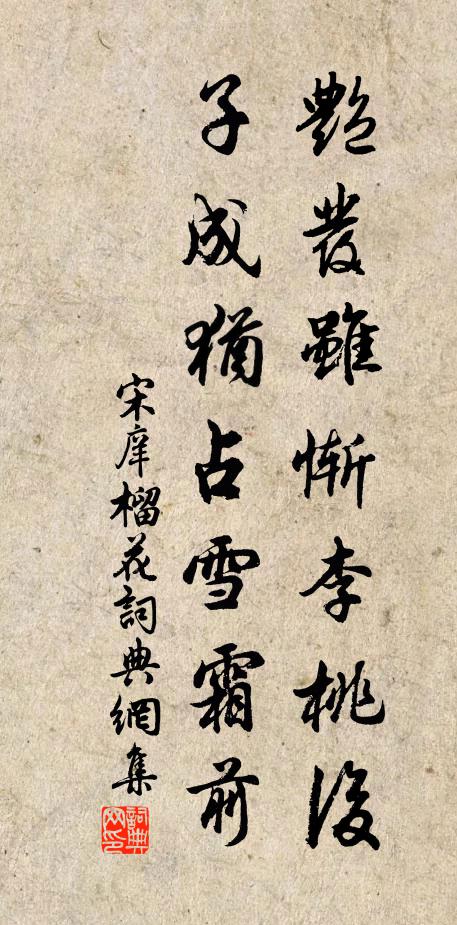 艷發雖慚李桃後
子成猶占雪霜前
宋庠榴花詞典網集
詞典网印